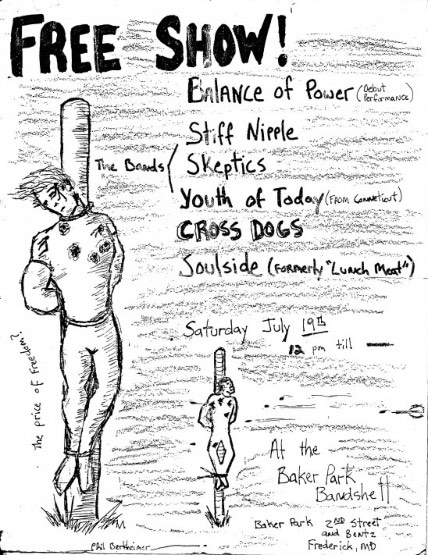 FREE SHOW!
Balance of Power (Debut Performance)
Stiff Nipple
The Bands
Skeptics
Youth of Today (FROM CONNETICUT)
CROSS DOGS
Soulside (FORMERLY "LUNCH MEAT")
Saturday July 19th
12 pm till
the price of freedom?
At the
Baker Park
Bandshell
Baker Park 2nd Street
and Bentz
Frederick, MD
Phil Bertheimer